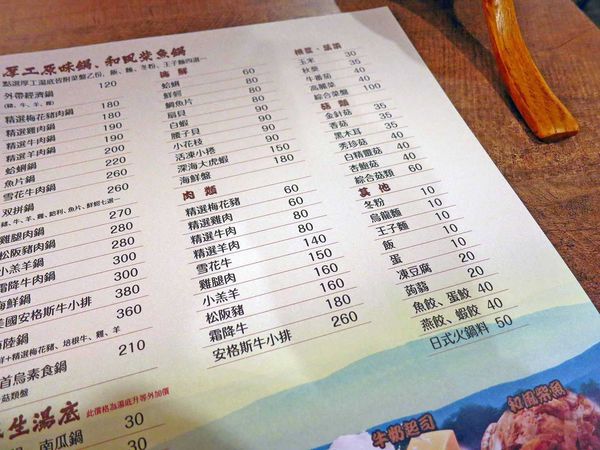 厚工原味鍋、和風柴魚鍋
點選厚工湯底皆附菜盤乙份，飯、麵、冬粉、王子麵四選一
外帶經濟鍋 120
(豬、牛、羊、雞)
精選梅花豬肉鍋 180
精選雞肉鍋 180
精選牛肉鍋 190
精選羊肉鍋 190
蛤蜊鍋 200
魚片鍋 220
雪花牛肉鍋 260
双拼鍋 260
豬、牛、羊、雞、蛤蜊、魚片、鮮蚵七選二
雞腿肉鍋 270
松阪豬肉鍋 280
小羔羊鍋 280
霜降牛肉鍋 300
海鮮鍋 300
美國安格斯牛小排 380
海陸鍋 360
鮮+精選梅花豬、培根牛、雞、羊
首烏素食鍋 210
菇類盤
生湯底 此價格為湯底升等外加價
30
南瓜鍋 30
海鮮
蛤蜊 60
鮮蚵 80
鯛魚片 80
扇貝 80
白蝦 80
腰子貝 80
小花枝 80
活凍小卷 150
深海大虎蝦 180
海鮮盤
肉類
精選梅花豬 60
精選雞肉 60
精選牛肉 80
精選羊肉 80
雪花牛 140
雞腿肉 150
小羔羊 160
松阪豬 160
霜降牛 180
安格斯牛小排 260
玉米 35
秋葵
牛番茄 30
高麗菜 35
綜合菜盤 100
菇類
金針菇 35
香菇 35
黑木耳 35
秀珍菇 35
白精靈菇 40
杏鮑菇 40
綜合菇類 60
其他
冬粉 10
烏龍麵 10
王子麵 10
飯 10
蛋 10
凍豆腐 20
蒟蒻 20
魚餃、蛋餃 40
燕餃、蝦餃 40
日式火鍋料 50
牛奶起司
和風柴魚